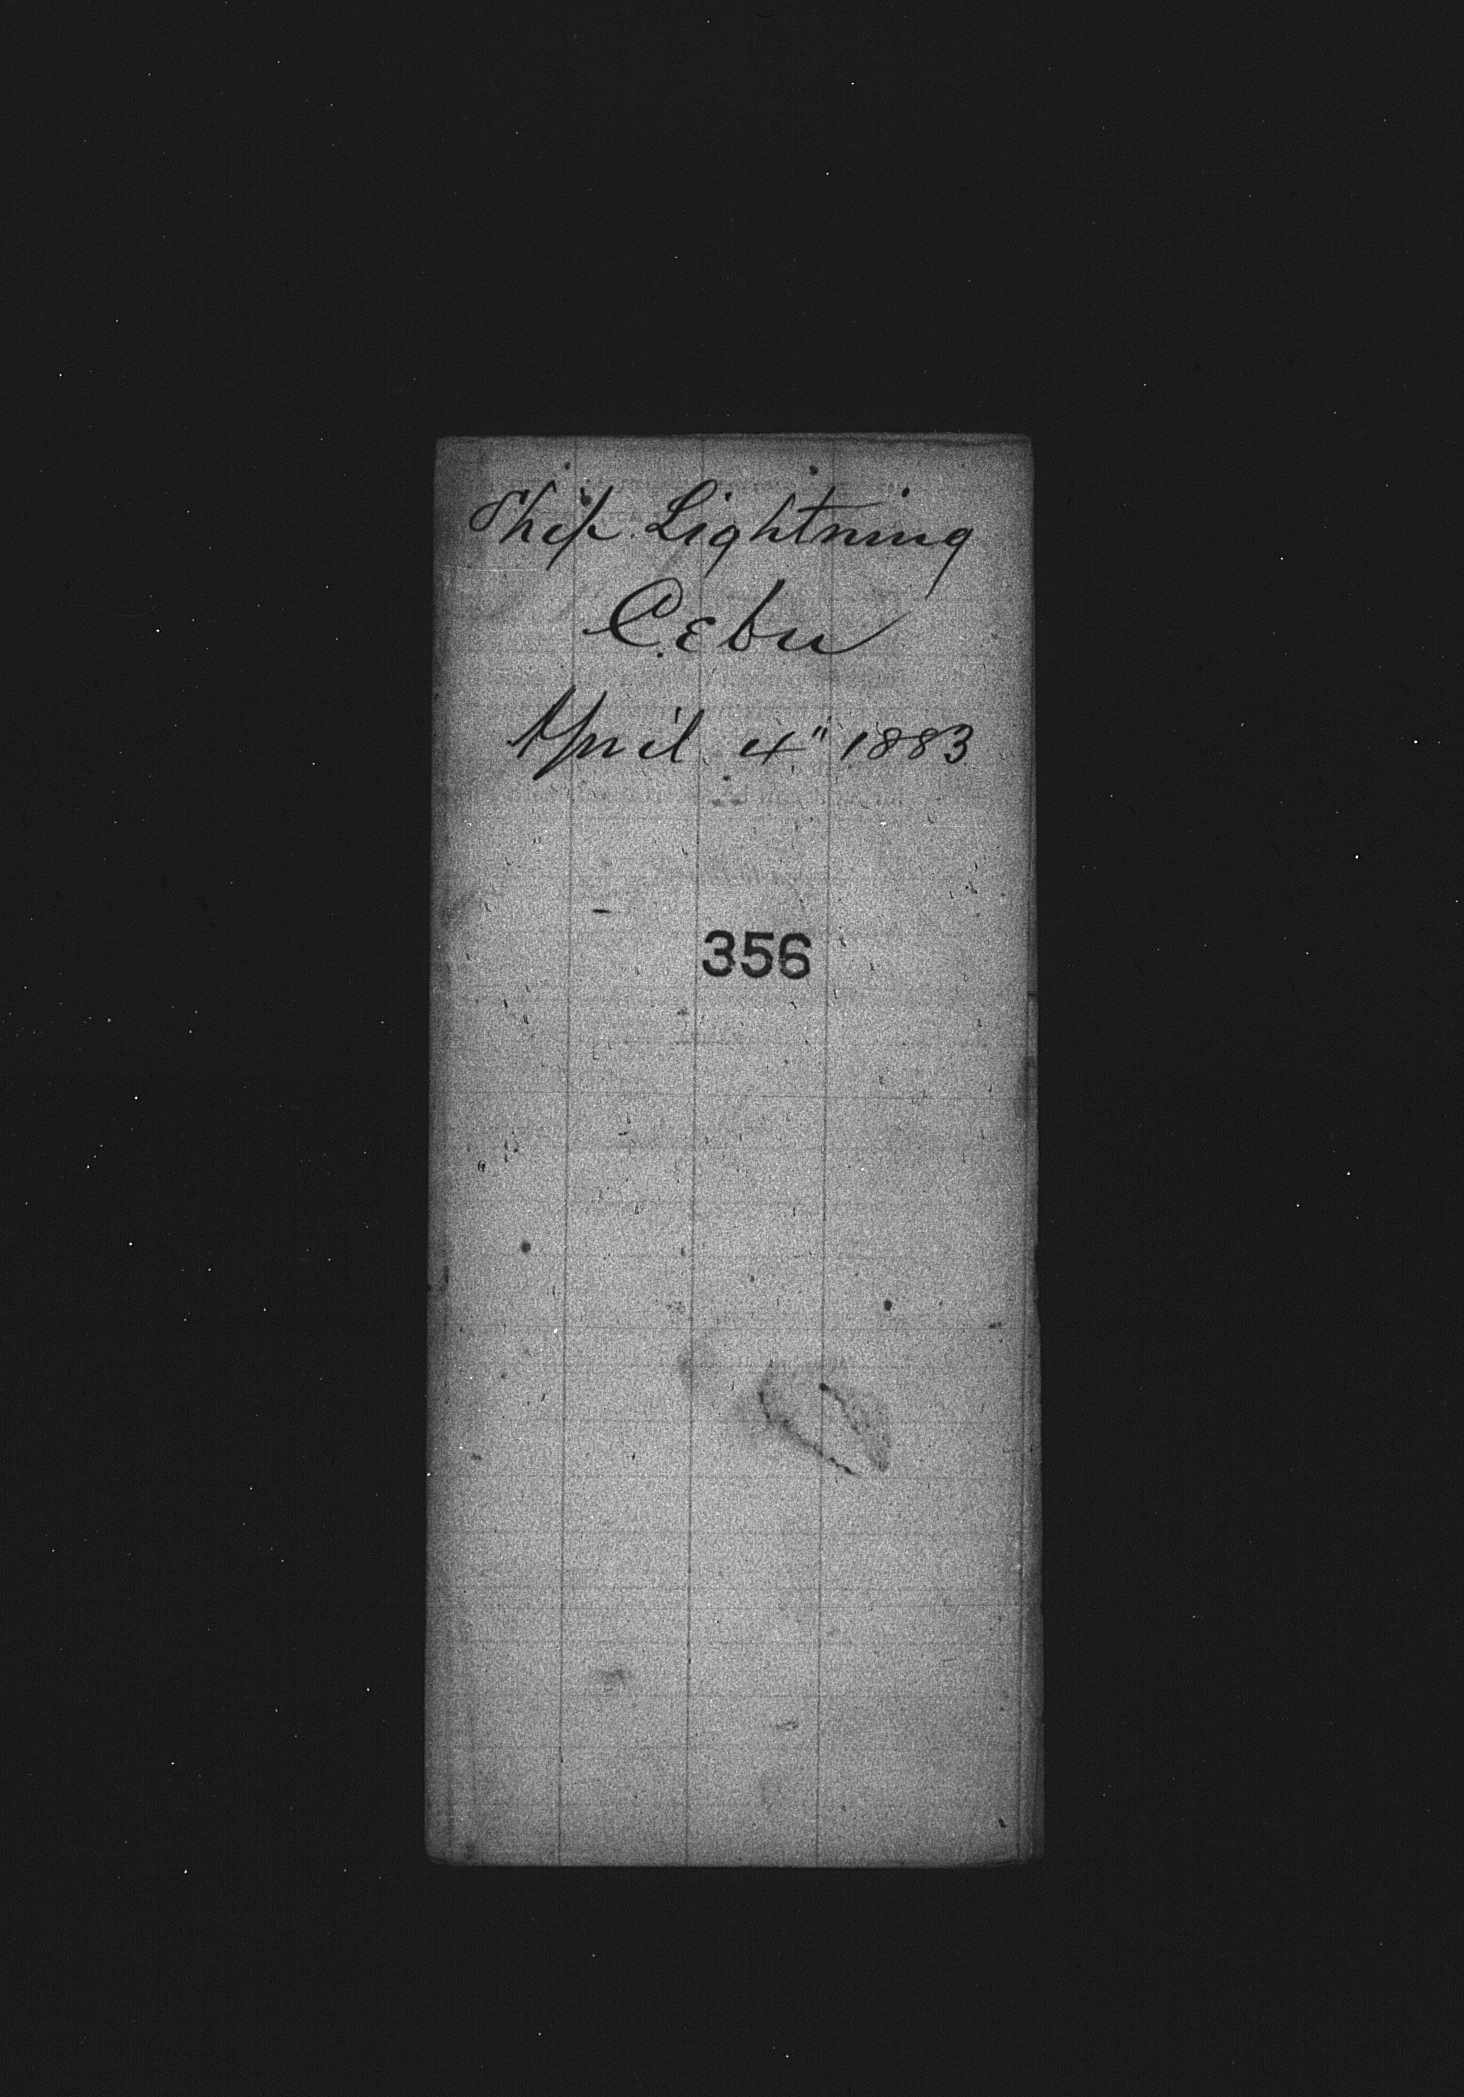 Ship Lightning
Cebu
April 4" 1883
356